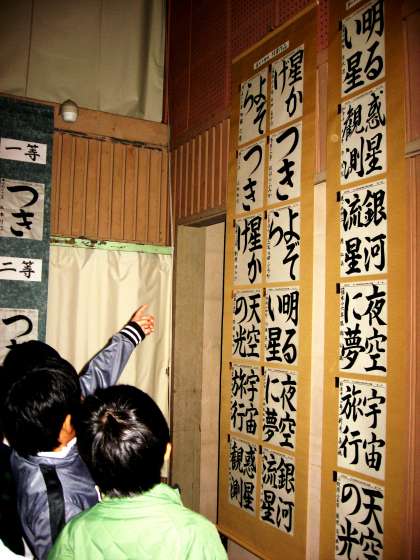 明る
い星
惑星
観測
銀河
流星
夜空
に夢
宇宙
旅行
天空
の光
星か
げ
よぞ
ら
つき
つき
よぞ
ら
星か
げ
明る
い星
天空
の光
夜空
に夢
宇宙
旅行
銀河
流星
惑星
観測
一等
つき
二等
つき